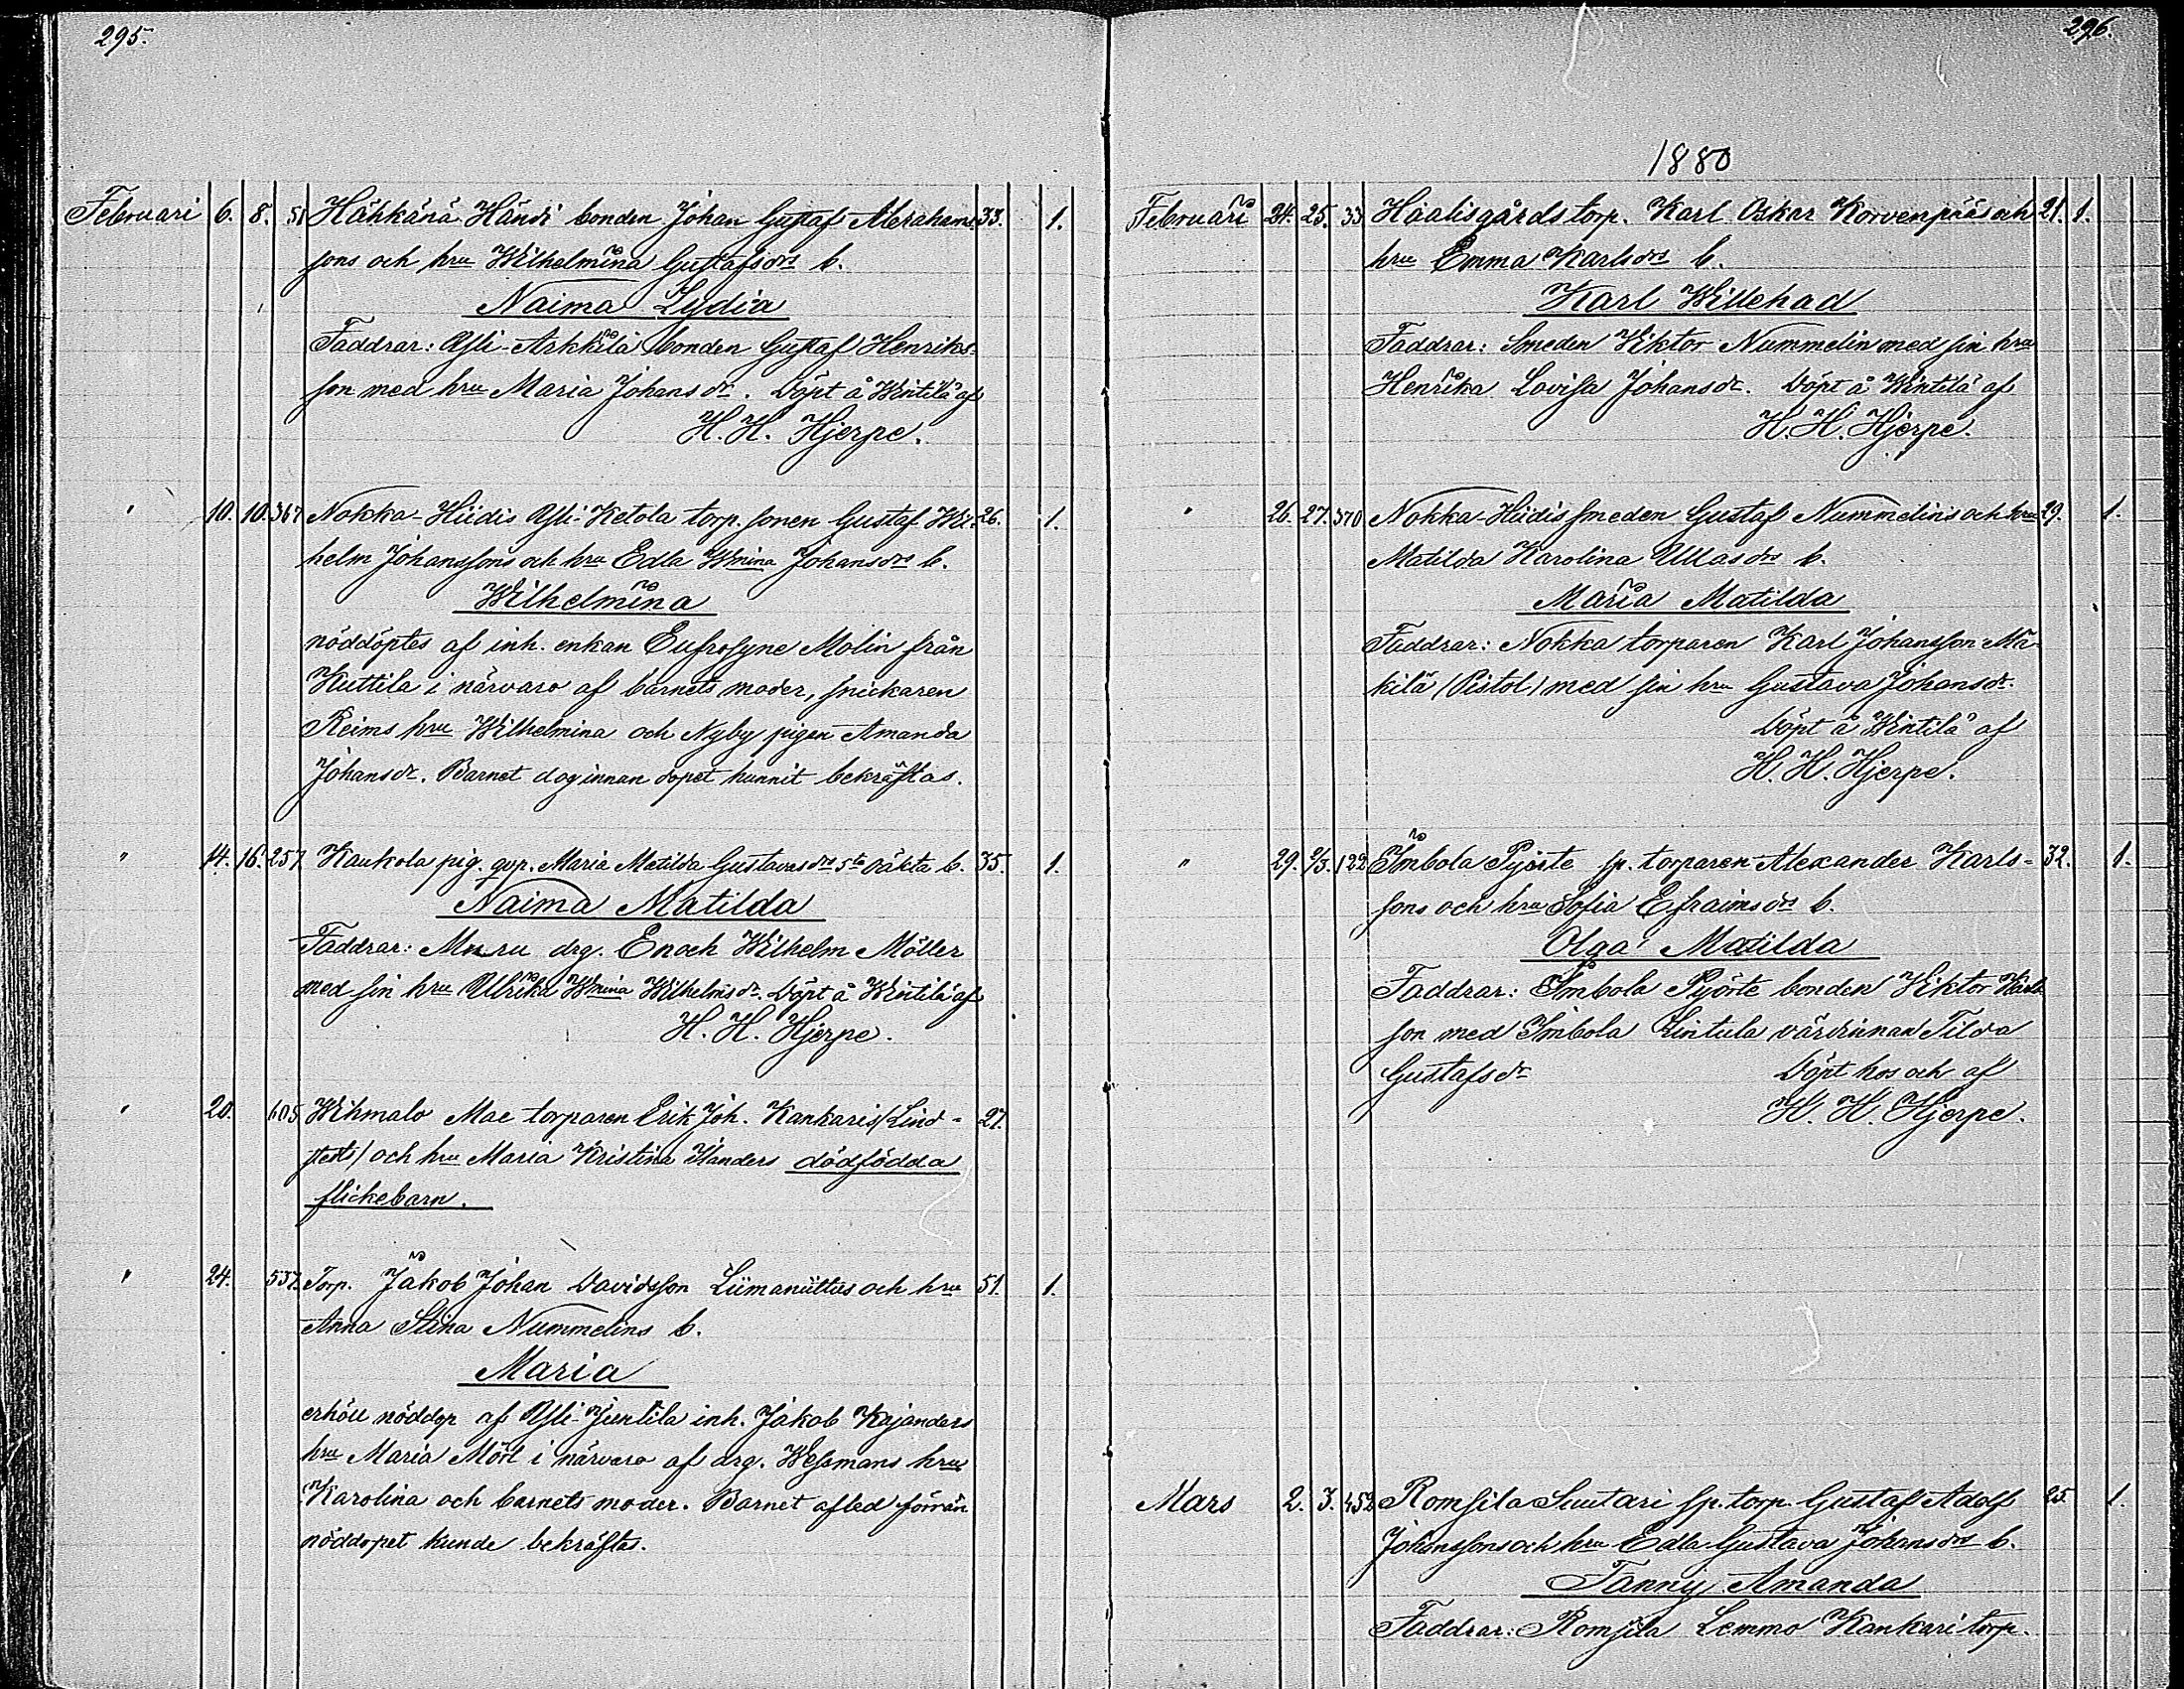 295.
Februari 6. 8. 51 Hähkänä Händi bonden Johan Gustaf Abrahams- 33. 1.
sons och hru Wilhelmina Gustafsdrs b.
Naima Lydia
Faddrar: Yli-Arkkila bonden Gustaf Henriks-
son med hru Maria Johansdr. Döpt å Wintilä af
H. H. Hjerpe.
" 10. 10. 367 Nokka-Hiidis Yli-Ketola torp. sonen Gustaf Wil- 26. 1.
helm Johanssons och hru Edla Wmina Johansdrs b.
Wilhelmina
nöddöptes af inh. enkan Eufrosyne Molin från
Kuttila i närvaro af barnets moder, snickaren
Reims hru Wilhelmina och Nyby pigan Amanda
Johansdr. Barnet dog innan dopet hunnit bekräftas.
" 14. 16. 257. Kaukola pig. qvp. Maria Matilda Gustavasdrs 5te oäkta b. 35. 1.
Naima Matilda
Faddrar: drg. Enoch Wilhelm Möller
med sin hru Ulrika Wmina Wilhelmsdr. Döpt å Wintilä af
H. H. Hjerpe.
" 20. 605 Wihmalo Mae torparen Erik Joh. Kankaris (Lind- 27.
stedts) och hru Maria Kristina Ilanders dödfödda
flickebarn.
" 24. 537. Torp. Jakob Johan Davidsson Liimaniittus och hru 51. 1.
Anna Stina Nummelins b.
Maria
erhöll nöddop af Yli-Juntila inh. Jakob Kajanders
hru Maria Mört i närvaro af drg. Wessmans hru
Karolina och barnets moder. Barnet afled förrän
nöddopet kunde bekräftas.
296.
1880
Februari 24. 25. 33 Haalisgårds torp. Karl Oskar Korvenpääs och 21. 1.
hru Emma Karlsdrs b.
Karl Willehad
Faddrar: Smeden Viktor Nummelin med sin hru
Henrika Lovisa Johansdr. Döpt å Wintilä af
H. H. Hjerpe.
" 26. 27. 370 Nokka-Hiidis smeden Gustaf Nummelins och hru 29. 1.
Matilda Karolina Ullasdrs b.
Maria Matilda
Faddrar: Nokka torparen Karl Johansson Mä-
kilä (Pistol) med sin hru Gustava Johansdr.
Döpt å Wintilä af
H. H. Hjerpe.
" 29. 2/3. 122 Imbola Pyörte sp. torparen Alexander Karls- 32. 1.
sons och hru Sofia Efraimsdrs b.
Olga Matilda
Faddrar: Imbola Pyörte bonden Viktor Karls
son med Imbola Lintula värdinnan Tilda
Gustafsdr Döpt hos och af
H. H. Hjerpe.
Mars 2. 3. 452 Romsila Suutari sp. torp. Gustaf Adolf 25. 1.
Johanssons och hru Edla Gustava Johansdrs b.
Fanny Amanda
Faddrar: Romsila Lemmo Kankari torp.